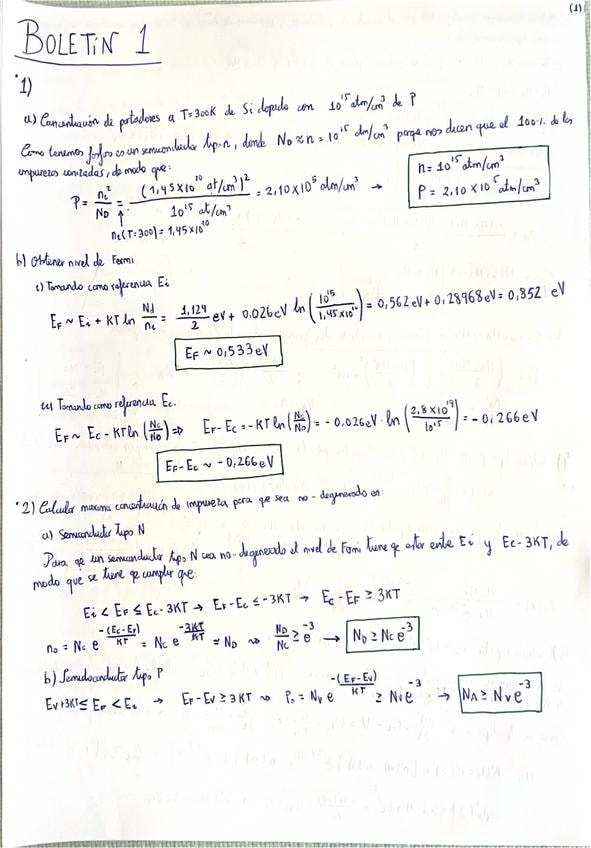 (1)
BOLETÍN 1
1)
a) Concentración de portadores a T=300K de Si dopado con 10^15 atm/cm^3 de P
Como tenemos fósforo es un semiconductor tipo n, donde N_D ≈ n = 10^15 atm/cm^3 porque nos dicen que el 100% de las
impurezas ionizadas, de modo que:
P = n_i^2/N_D = (1,45×10^10 at/cm^3)^2 / 10^15 at/cm^3 = 2,10×10^5 atm/cm^3 → n = 10^15 atm/cm^3
P = 2,10×10^5 atm/cm^3
n_i(T=300) = 1,45×10^10
b) Obtener nivel de Fermi
i) Tomando como referencia Ei
E_F ~ E_i + KT ln N_d/n_i = 1,124/2 eV + 0.026eV ln (10^15/1,45×10^10) = 0,562 eV + 0,28968 eV = 0,852 eV
E_F ~ 0,533 eV
ii) Tomando como referencia Ec.
E_F ~ E_C - KT ln (N_C/N_D) ⇒ E_F - E_C = -KT ln (N_C/N_D) = -0.026eV · ln (2,8×10^19/10^15) = -0,266eV
E_F - E_C ~ -0,266 eV
2) Calcular maxima concentración de impureza para qe sea no-degenerado en:
a) Semiconductor tipo N
Para qe un semiconductor tipo N sea no-degenerado el nivel de Fermi tiene qe estar entre Ei y Ec-3KT, de
modo que se tiene qe cumplir que:
E_i < E_F ≤ E_C-3KT → E_F-E_C ≤ -3KT → E_C-E_F ≥ 3KT
n_0 = N_C e^-(E_C-E_F)/KT = N_C e^-3KT/KT = N_D ⇝ N_D/N_C ≥ e^-3 → N_D ≥ N_C e^-3
b) Semidoconductor tipo P
E_V+3KT ≤ E_F < E_i → E_F-E_V ≥ 3KT ⇝ P_0 = N_V e^-(E_F-E_V)/KT ≥ N_V e^-3 → N_A ≥ N_V e^-3